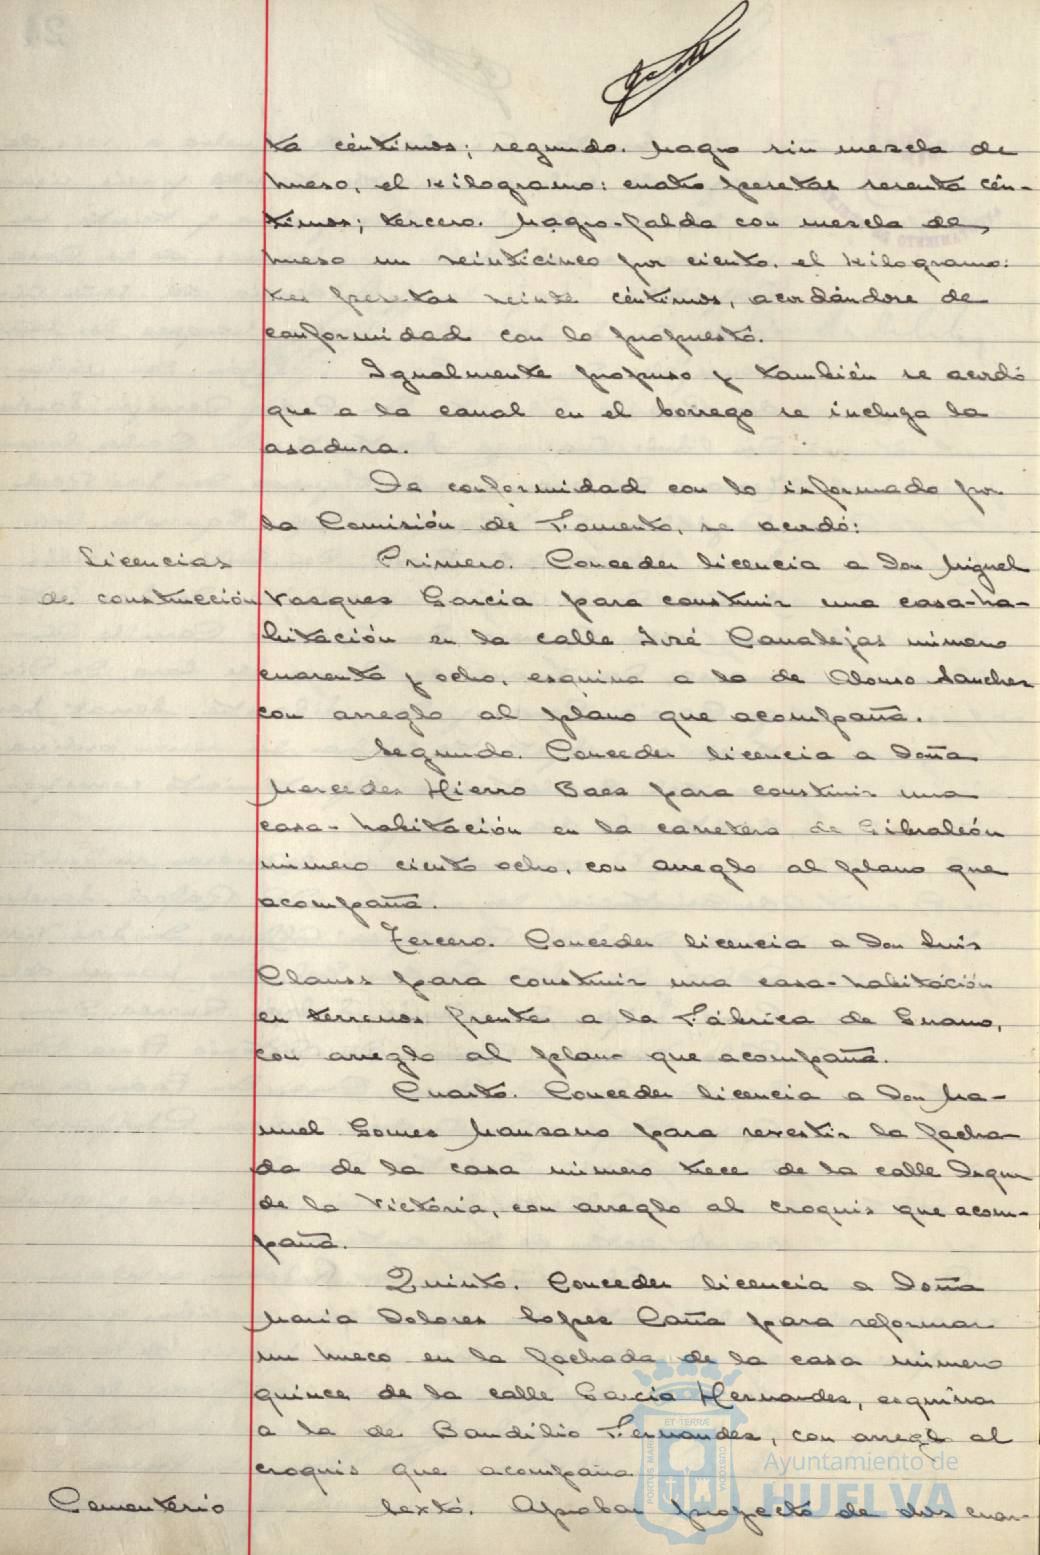 ta céntimos; segundo. Magro sin mezcla de
hueso, el kilogramo: cuatro pesetas sesenta cén-
timos; tercero. Magro-falda con mezcla de
hueso un veinticinco por ciento, el kilogramo:
tres pesetas veinte céntimos, acordándose de
conformidad con lo propuesto.
Igualmente propuso y también se acordó
que a la canal en el borrego se incluya la
asadura.
De conformidad con lo informado por
la Comisión de Fomento, se acordó:
Licencias
de construcción
Primero. Conceder licencia a Don Miguel
Vasques Garcia para construir una casa-ha-
bitación en la calle José Canalejas número
cuarenta y ocho, esquina a la de Alonso Sanchez
con arreglo al plano que acompaña.
Segundo. Conceder licencia a Doña
Mercedes Hierro Baea para construir una
casa-habitación en la carretera de Gibraleón
número ciento ocho, con arreglo al plano que
acompaña.
Tercero. Conceder licencia a Don Luis
Clauss para construir una casa-habitación
en terrenos frente a la Fábrica de Guano,
con arreglo al plano que acompaña.
Cuarto. Conceder licencia a Don Ma-
nuel Gomes Mansano para revestir la facha-
da de la casa número trece de la calle Duque
de la Victoria, con arreglo al croquis que acom-
paña.
Quinto. Conceder licencia a Doña
Maria Dolores Lopes Caña para reformar
un hueco en la fachada de la casa número
quince de la calle Garcia Hernandes, esquina
a la de Baudilio Fernandes, con arreglo al
croquis que acompaña
Cementerio
Sexto. Aprobar proyecto de dos cuar-
PORTUS MARIS
ET TERRÆ
CUSTODIA
Ayuntamiento de
HUELVA